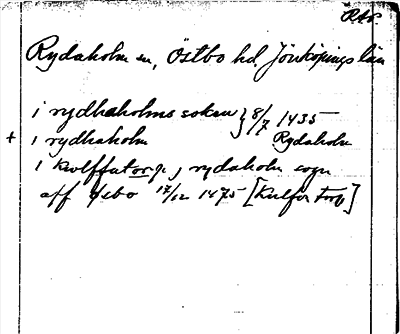 RAP
Rydaholm sn, Östbo hd, Jönköpings län
i rydhaholms sokn } 8/7 1435
+ i rydhaholm Rydaholm
i kulffatorp, j rydaholm sogn
aff øsbo 17/12 1475 [Kulfor torp]